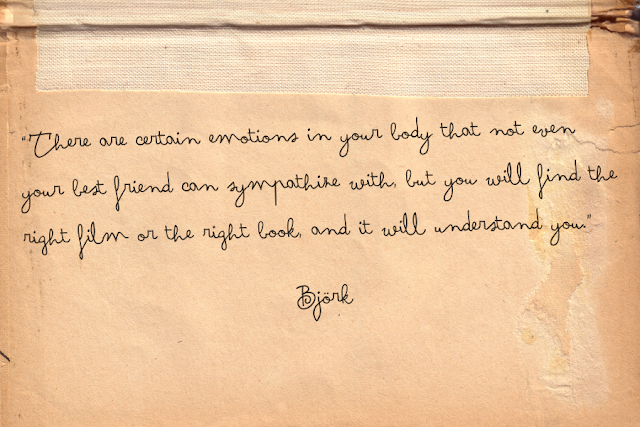 "There are certain emotions in your body that not even
your best friend can sympathize with, but you will find the
right film or the right book, and it will understand you."
Björk